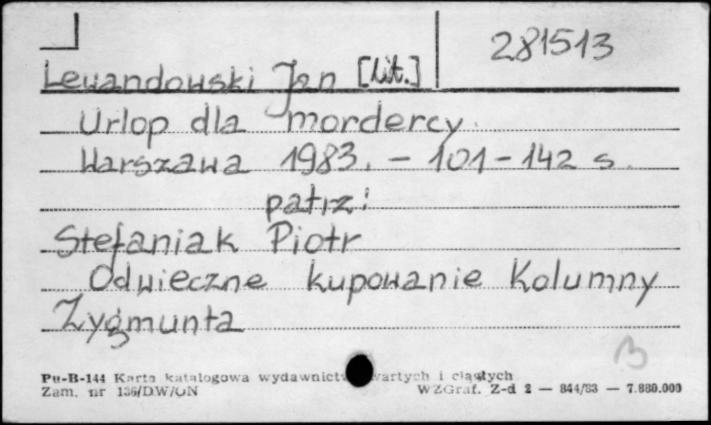 281513
Lewandowski Jan [lit.]
Urlop dla mordercy
Warszawa 1983. - 101-142 s.
patrz:
Stefaniak Piotr
Odwieczne kupowanie Kolumny
Zygmunta
B
Pu-B-144 Karta katalogowa wydawnictw zwartych i ciągłych
Zam. nr 136/DW/ON WZGraf. Z-d 2 — 844/83 — 7.880.000